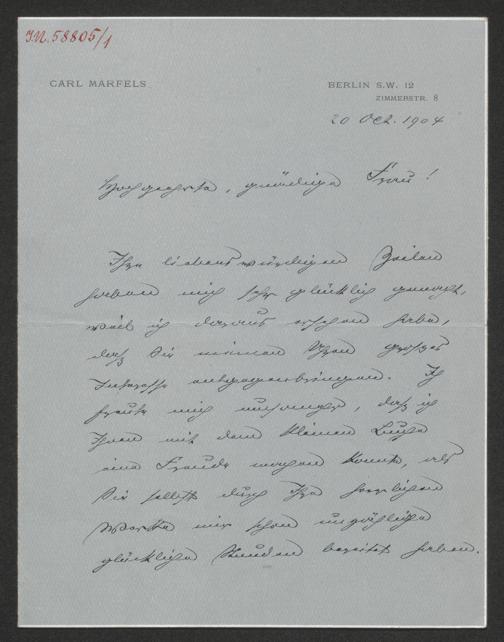 I.N. 58805/1
CARL MARFELS
BERLIN S.W. 12
ZIMMERSTR. 8
20 Oct. 1904
Hochgeehrte, gnädige Frau!
Ihre liebenswürdigen Zeilen
haben mich sehr glücklich gemacht,
weil ich daraus ersehen habe,
daß Sie meinen Uhren großes
Interesse entgegenbringen. Ich
freute mich umsomehr, daß ich
Ihnen mit dem kleinen
eine Freude machen konnte, als
Sie selbst durch Ihre herrlichen
Werke mir schon unzählige
glückliche Stunden bereitet haben.